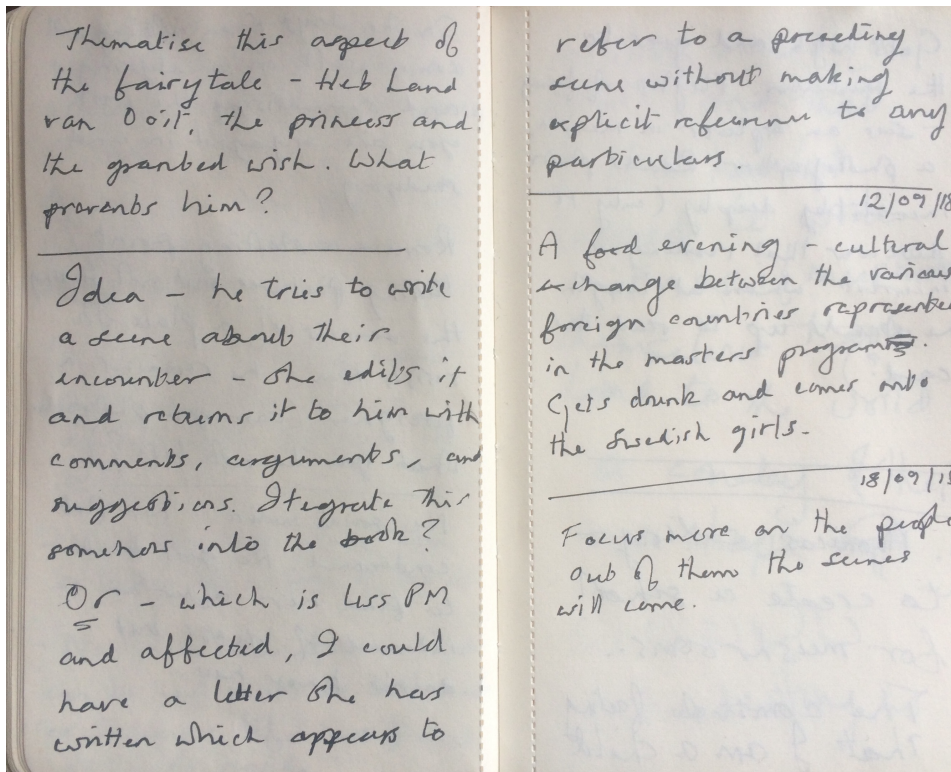 Thematise this aspect of
the fairytale - Het Land
van Ooit, the princess and
the granted wish. What
prevents him?
Idea - he tries to write
a scene about their
encounter - She edits it
and returns it to him with
comments, arguments, and
suggestions. Itegrate this
somehow into the book?
Or - which is less PM
and affected, I could
have a letter She has
written which appears to
refer to a preceding
scene without making
explicit reference to any
particulars.
12/09/18
A food evening - cultural
exchange between the various
foreign countries represented
in the masters program.
Gets drunk and comes onto
the Swedish girls.
18/09/1
Focus more on the people
out of them the scenes
will come.